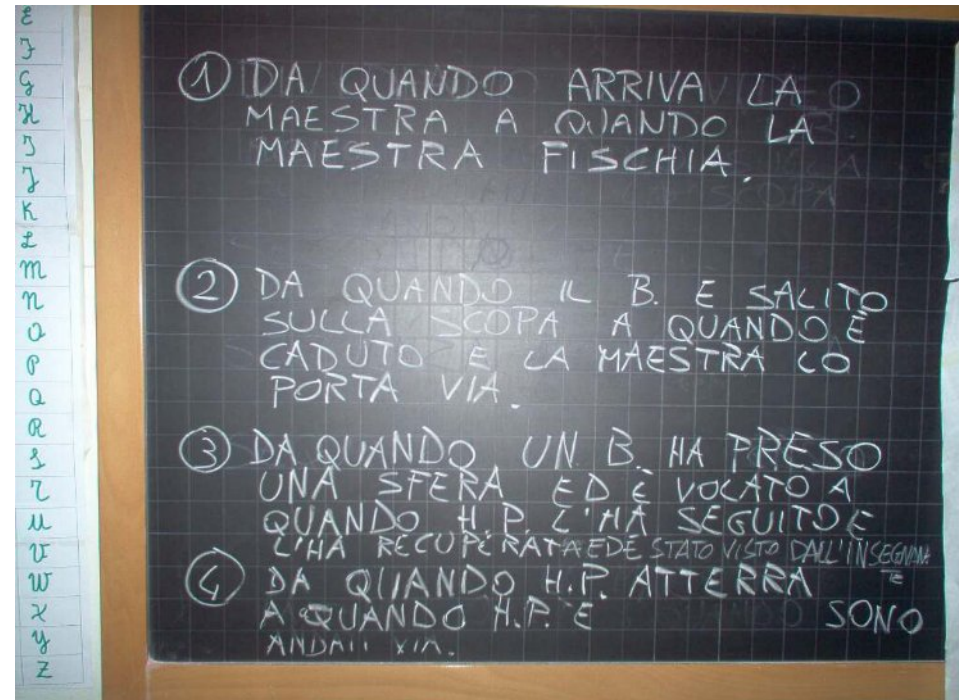 E
F
G
H
I
J
K
L
M
N
O
P
Q
R
S
T
U
V
W
X
Y
Z
① DA QUANDO ARRIVA LA
MAESTRA A QUANDO LA
MAESTRA FISCHIA.
② DA QUANDO IL B. E SALITO
SULLA SCOPA A QUANDO È
CADUTO E LA MAESTRA LO
PORTA VIA.
③ DA QUANDO UN B. HA PRESO
UNA SFERA ED È VOLATO A
QUANDO H.P. L'HA SEGUITO E
L'HA RECUPERATA ED È STATO VISTO DALL'INSEGNANTE
④ DA QUANDO H.P. ATTERRA
A QUANDO H.P. E SONO
ANDATI VIA.